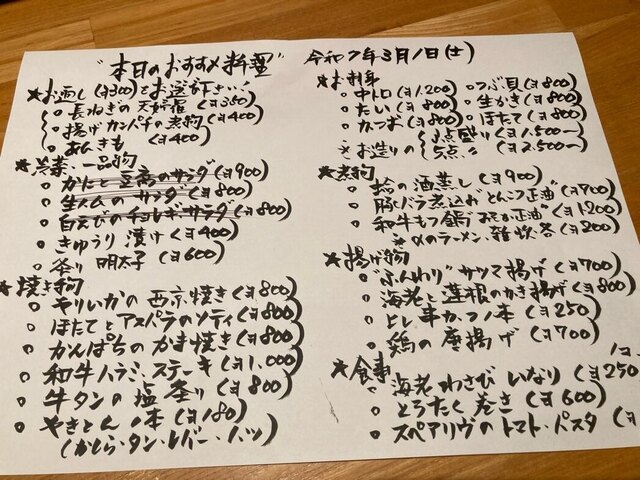 "本日のおすすめ料理"
令和7年3月1日(土)
★お通し(¥300)とお選び下さい!
○長ねぎの天ぷら(¥350)
○揚げカンパチの煮物(¥400)
○あんきも(¥400)
★前菜・一品物
○かにと豆腐のサラダ(¥900)
○生ハムのサラダ(¥800)
○白えびのチョレギサラダ(¥800)
○きゅうり漬け(¥400)
○炙り明太子(¥600)
★焼き物
○やりいかの西京焼き(¥800)
○ほたてとアスパラのソティ(¥800)
○かんぱちのかま焼き(¥800)
○和牛ハラミ・ステーキ(¥1,000)
○牛タンの塩炙り(¥800)
○やきとん1本(¥180)
(かしら・タン・レバー・ハツ)
★お刺身
○中トロ(¥1,200)
○つぶ貝(¥800)
○たい(¥800)
○生かき(¥800)
○かつお(¥800)
○ほたて(¥800)
○お造りの
3点盛り(¥1,500〜)
5点〃(¥2,500〜)
★煮物
の酒蒸し(¥900)
○豚バラ煮込み"とんこつ正油"(¥700)
○和牛もつ鍋 正油"(¥1,200)
※〆のラーメン・雑炊各(¥200)
★揚げ物
○"ふんわり"サツマ揚げ(¥700)
○海老と蓮根のかき揚げ(¥800)
○ヒレ串かつ1本(¥250)
○鶏の唐揚げ(¥700)
★食事
○海老わさびいなり(¥250
1コ
○とろたく巻き(¥600)
○スペアリブのトマト・パスタ(¥